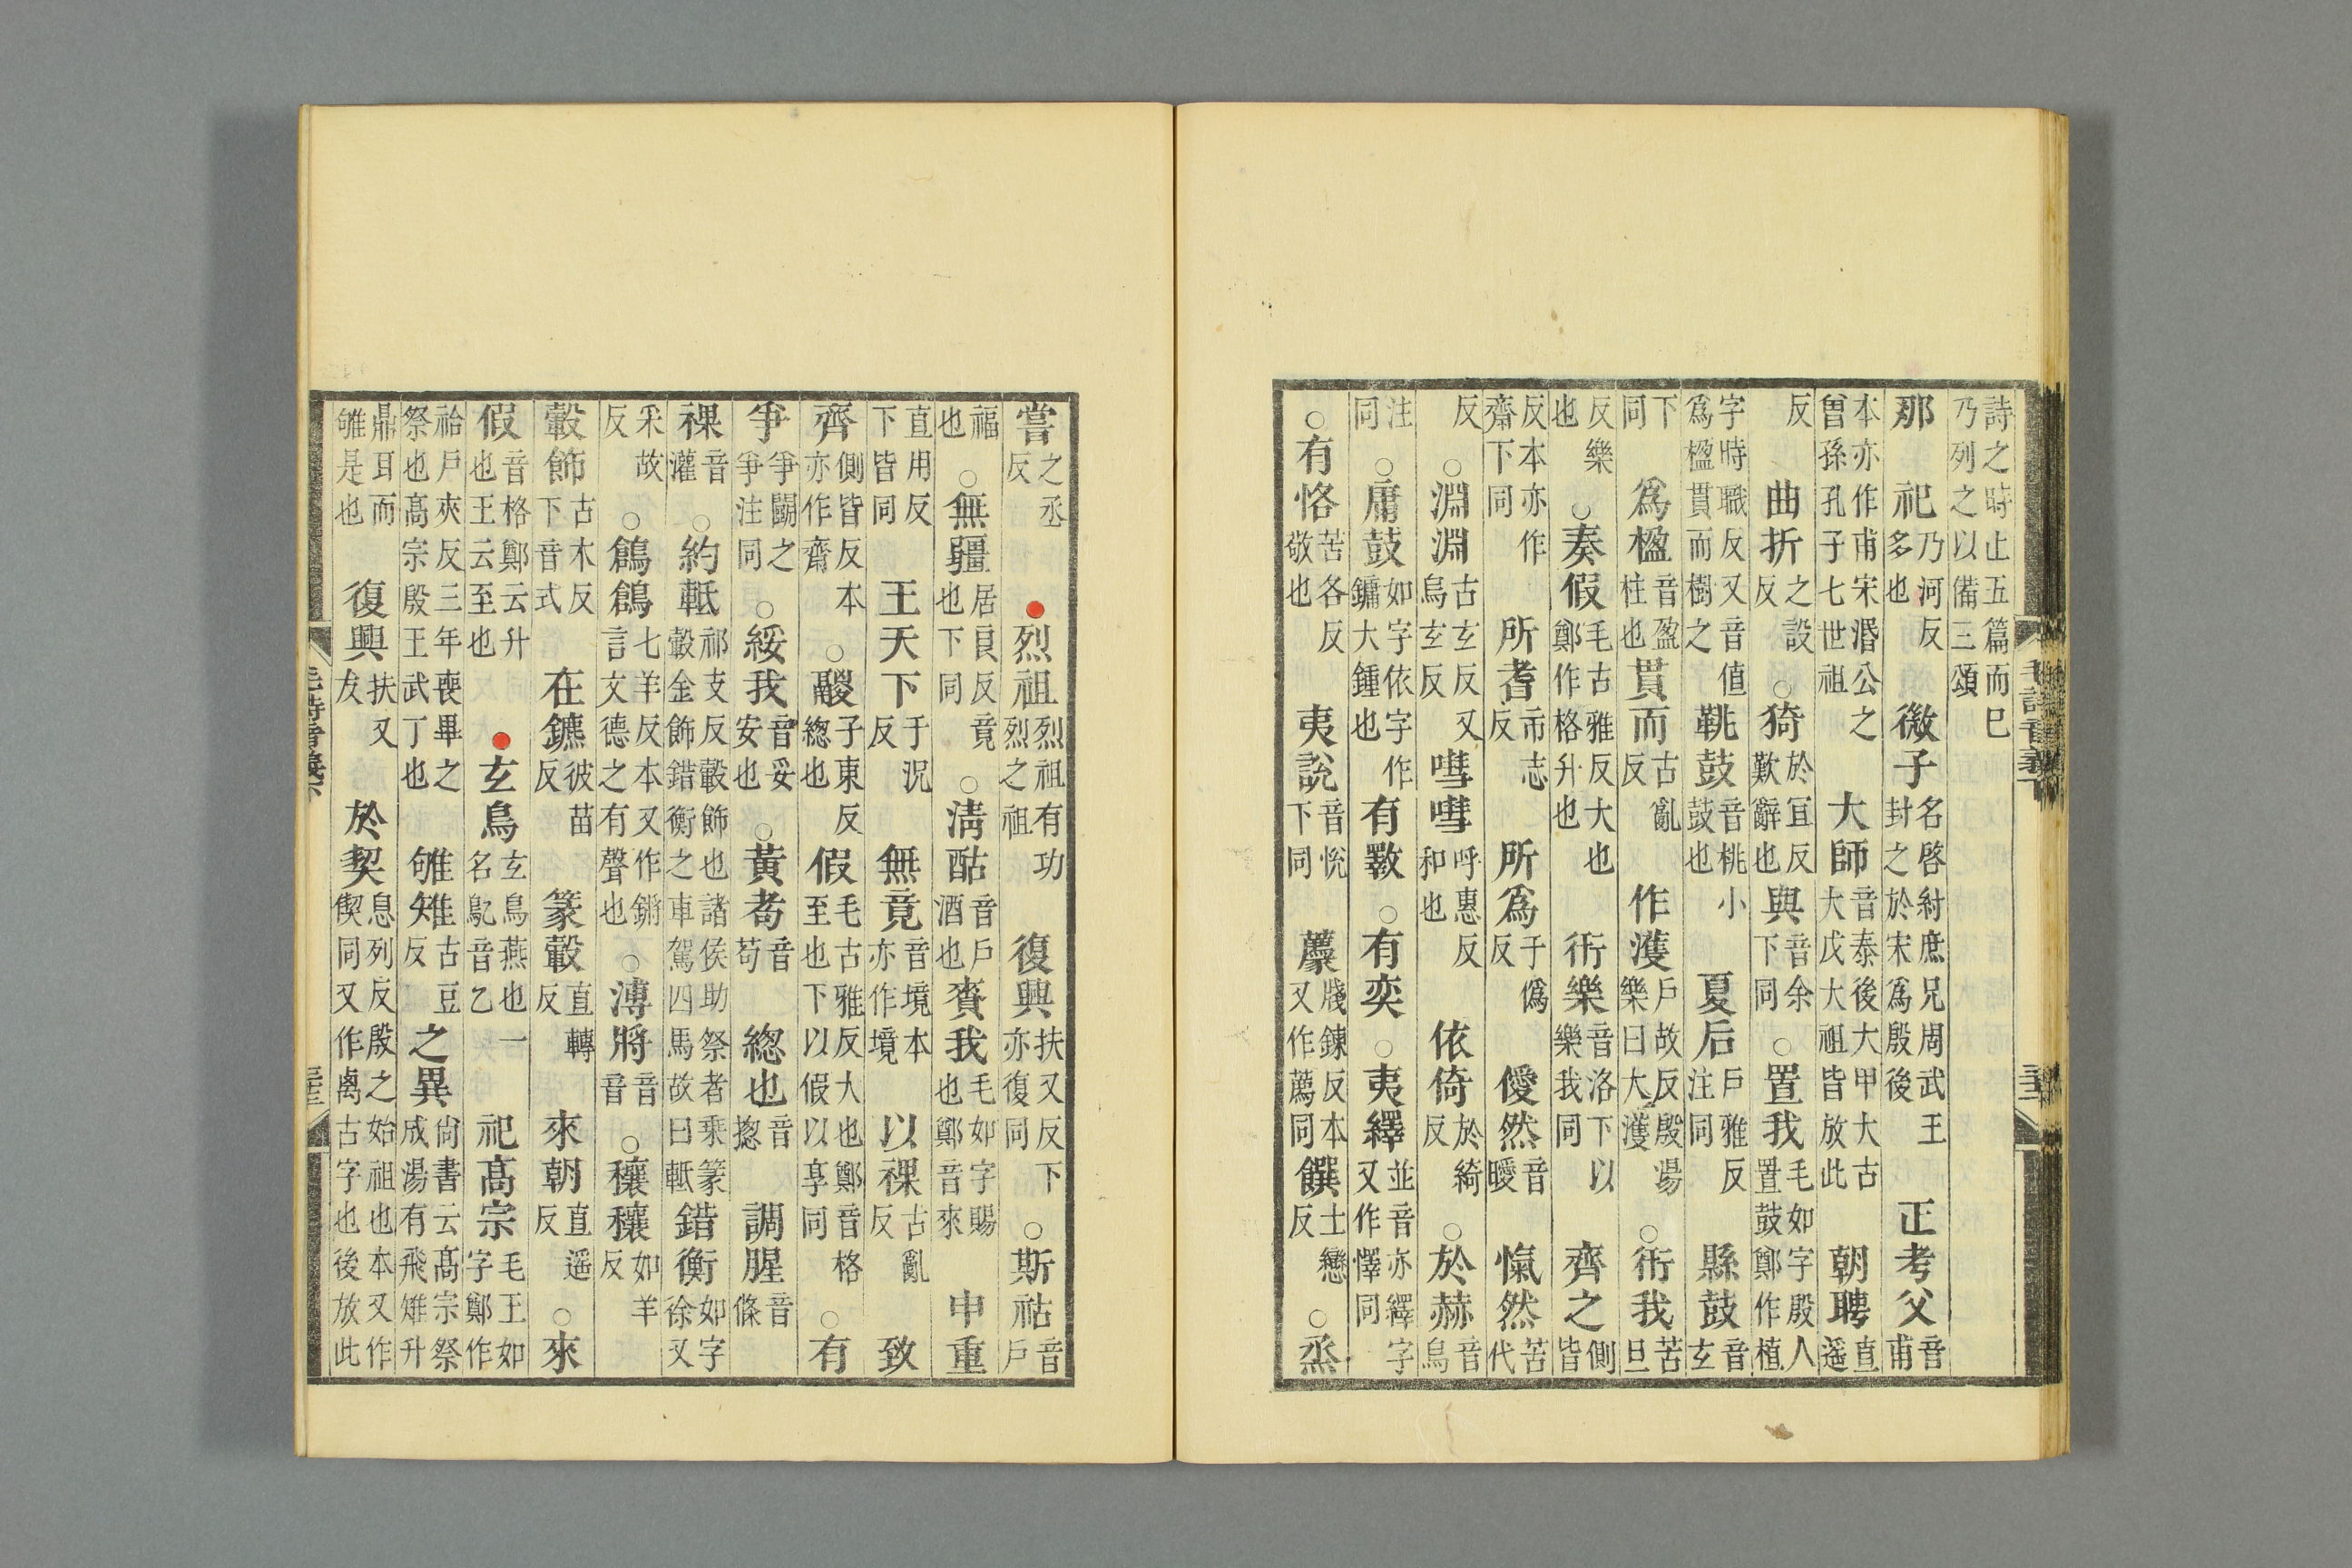 詩之時止五篇而巳乃列之以備三頌
那 祀乃河反多也 微子名啓紂庶兄周武王封之於宋爲殷後 正考父音甫
本亦作甫宋湣公之曾孫孔子七世祖 大師音泰後大甲大戊大祖皆放此 朝聘直遥
反 曲折之設反 ○猗於冝反歎辭也 與音余下同 ○置我毛如字殷人置鼓鄭作植
字時職反又音值爲楹貫而樹之 鞉鼓音桃小鼓也 夏后戶雅反注同 縣鼓音玄
下同 爲楹音盈柱也 貫而古亂反 作濩戶故反殷湯樂曰大濩 ○衎我苦旦
反樂也 ○奏假毛古雅反大也鄭作格升也 衎樂音洛下以樂我同 齊之側皆
反本亦作齋下同 所耆市志反 所爲于僞反 僾然音曖 愾然苦代
反 ○淵淵古玄反又烏玄反 嘒嘒呼惠反和也 依倚於綺反 ○於赫音烏
注同 ○庸鼓如字依字作鏞大鍾也 有斁 ○有奕 ○夷繹並音亦繹字又作懌同
○有恪苦各反敬也 夷說音悅下同 薦牋錬反本又作薦同 饌士戀反 ○烝
嘗之丞反 烈祖烈祖有功烈之祖 復興扶又反下亦復同 ○斯祜音戶
福也 ○無疆居良反竟也下同 ○淸酤音戶酒也 賚我毛如字賜也鄭音來 申重
直用反下皆同 王天下于況反 無竟音境本亦作境 以祼古亂反 致
齊側皆反本亦作齋 ○鬷子東反緫也 假毛古雅反大也鄭音格至也下以假以享同 ○有
爭爭鬭之爭注同 ○綏我音妥安也 ○黃耇音苟 緫也音揔 調腥音條
祼音灌 ○約軝祁支反轂飾也諸侯助祭者乘篆轂金飾錯衡之車駕四馬故曰軝 錯衡如字徐又
采故反 ○鶬鶬七羊反本又作鏘言文德之有聲也 ○溥將音音 ○穰穰如羊反
轂飾古木反下音式 在鑣彼苗反 篆轂直轉反 來朝直遥反 ○來
假音格鄭云升也王云至也 玄鳥玄鳥燕也一名鳦音乙 祀高宗毛王如字鄭作
祫戶夾反三年喪畢之祭也高宗殷王武丁也 雊雉古豆反 之異尙書云高宗祭成湯有飛雉升
鼎耳而雊是也 復興扶又反 於契息列反殷之始祖也本又作偰同又作禼古字也後放此
毛詩音義下